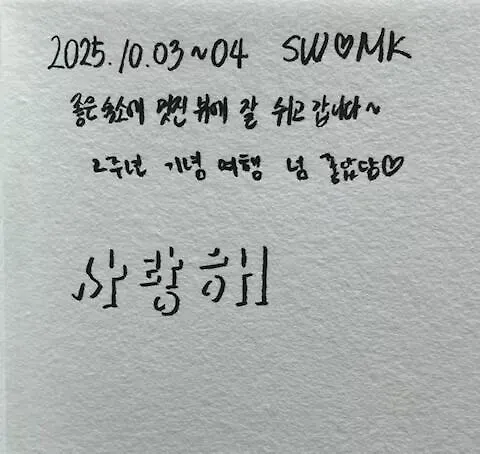 2025.10.03~04 SW♡MK
좋은 숙소에 멋진 뷰에 잘 쉬고 갑니다~
2주년 기념 여행 넘 좋았담♡
사랑해